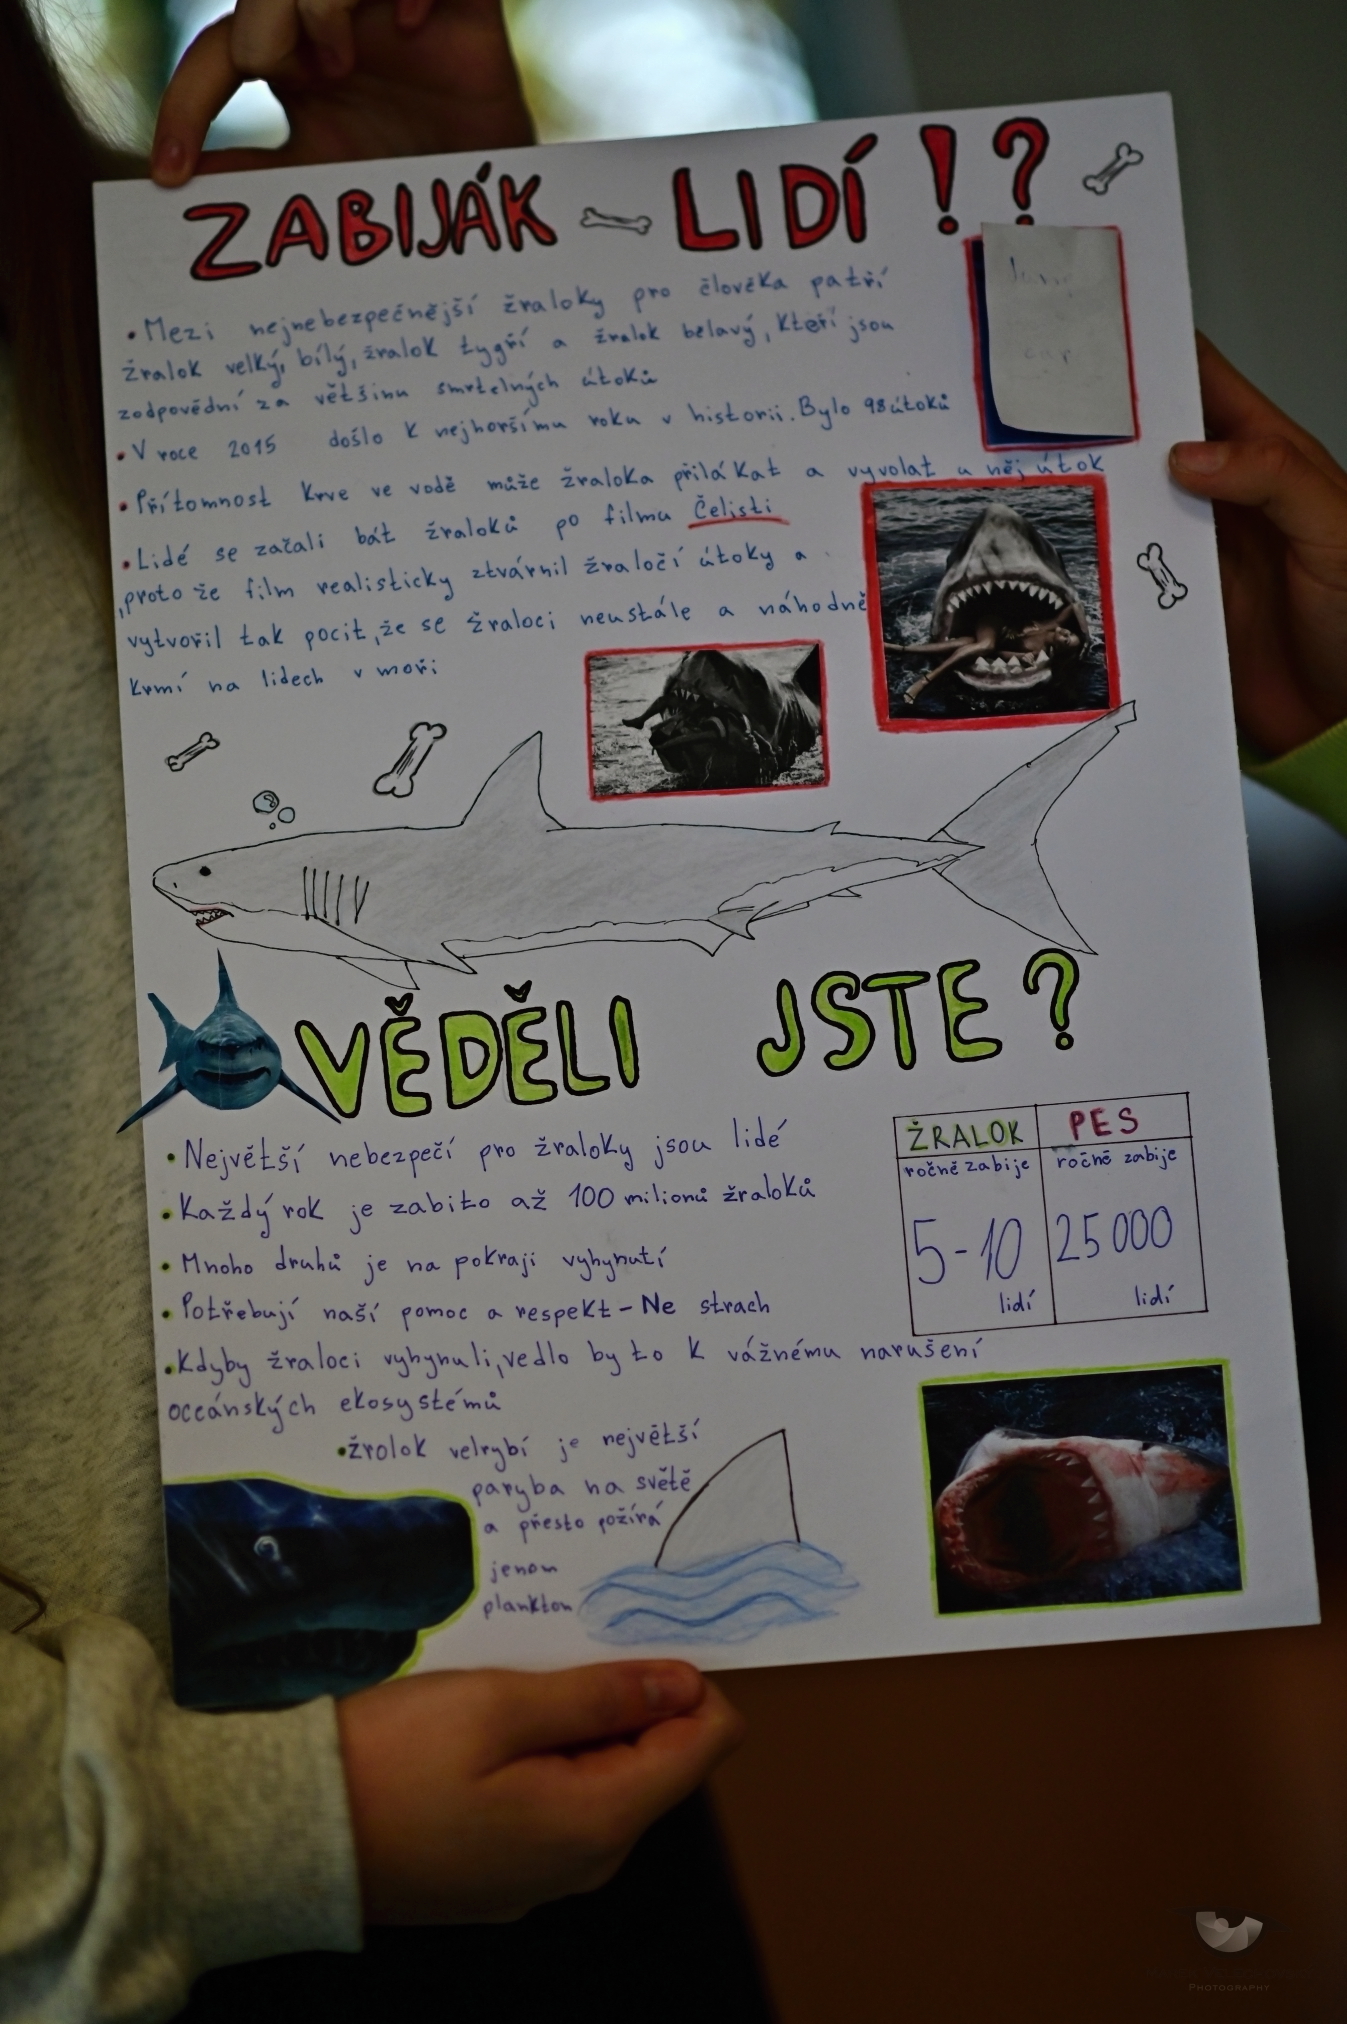 ZABIJÁK LIDÍ!?
• Mezi nejnebezpečnější žraloky pro člověka patří
žralok velký, bílý, žralok tygří a žralok belavý, kteří jsou
zodpovědní za většinu smrtelných útoků
• V roce 2015 došlo k nejhoršímu roku v historii. Bylo 98 útoků
• Přítomnost krve ve vodě může žraloka přilákat a vyvolat u něj útok
• Lidé se začali bát žraloků po filmu Čelisti
, proto že film realisticky ztvárnil žraločí útoky a
vytvořil tak pocit, že se žraloci neustále a náhodně
krmí na lidech v moři
VĚDĚLI JSTE?
• Největší nebezpečí pro žraloky jsou lidé
• Každý rok je zabito až 100 milionů žraloků
• Mnoho druhů je na pokraji vyhynutí
• Potřebují naší pomoc a respekt - Ne strach
• Kdyby žraloci vyhynuli, vedlo by to k vážnému narušení
oceánských ekosystémů
• žrolok velrybí je největší
paryba na světě
a přesto požírá
jenom
plankton
ŽRALOK PES
ročně zabije ročně zabije
5-10 25 000
lidí lidí
PHOTOGRAPHY